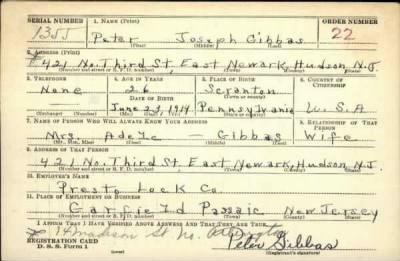 SERIAL NUMBER 1. NAME (Print) ORDER NUMBER
1355 Peter Joseph Gibbas 22
(First) (Middle) (Last)
2. ADDRESS (Print)
421 No. Third St, East Newark, Hudson N.J.
(Number and street or R. F. D. number) (Town) (County) (State)
3. TELEPHONE 4. AGE IN YEARS 5. PLACE OF BIRTH 6. COUNTRY OF CITIZENSHIP
None 26 Scranton
DATE OF BIRTH (Town or county)
June 23, 1914 Pennsylvania U.S.A
(Exchange) (Number) (Mo.) (Day) (Yr.) (State or country)
7. NAME OF PERSON WHO WILL ALWAYS KNOW YOUR ADDRESS 8. RELATIONSHIP OF THAT PERSON
Mrs. Adele — Gibbas Wife
(Mr., Mrs., Miss) (First) (Middle) (Last)
9. ADDRESS OF THAT PERSON
421 No. Third St, East Newark, Hudson N.J.
(Number and street or R. F. D. number) (Town) (County) (State)
10. EMPLOYER'S NAME
Presto Lock Co.
11. PLACE OF EMPLOYMENT OR BUSINESS
Garfield Passaic New Jersey
(Number and street or R. F. D. number) (Town) (County) (State)
I AFFIRM THAT I HAVE VERIFIED ABOVE ANSWERS AND THAT THEY ARE TRUE.
74 Madison St No. Arlington
REGISTRATION CARD
D. S. S. Form 1 Peter Gibbas
(Registrant's signature)